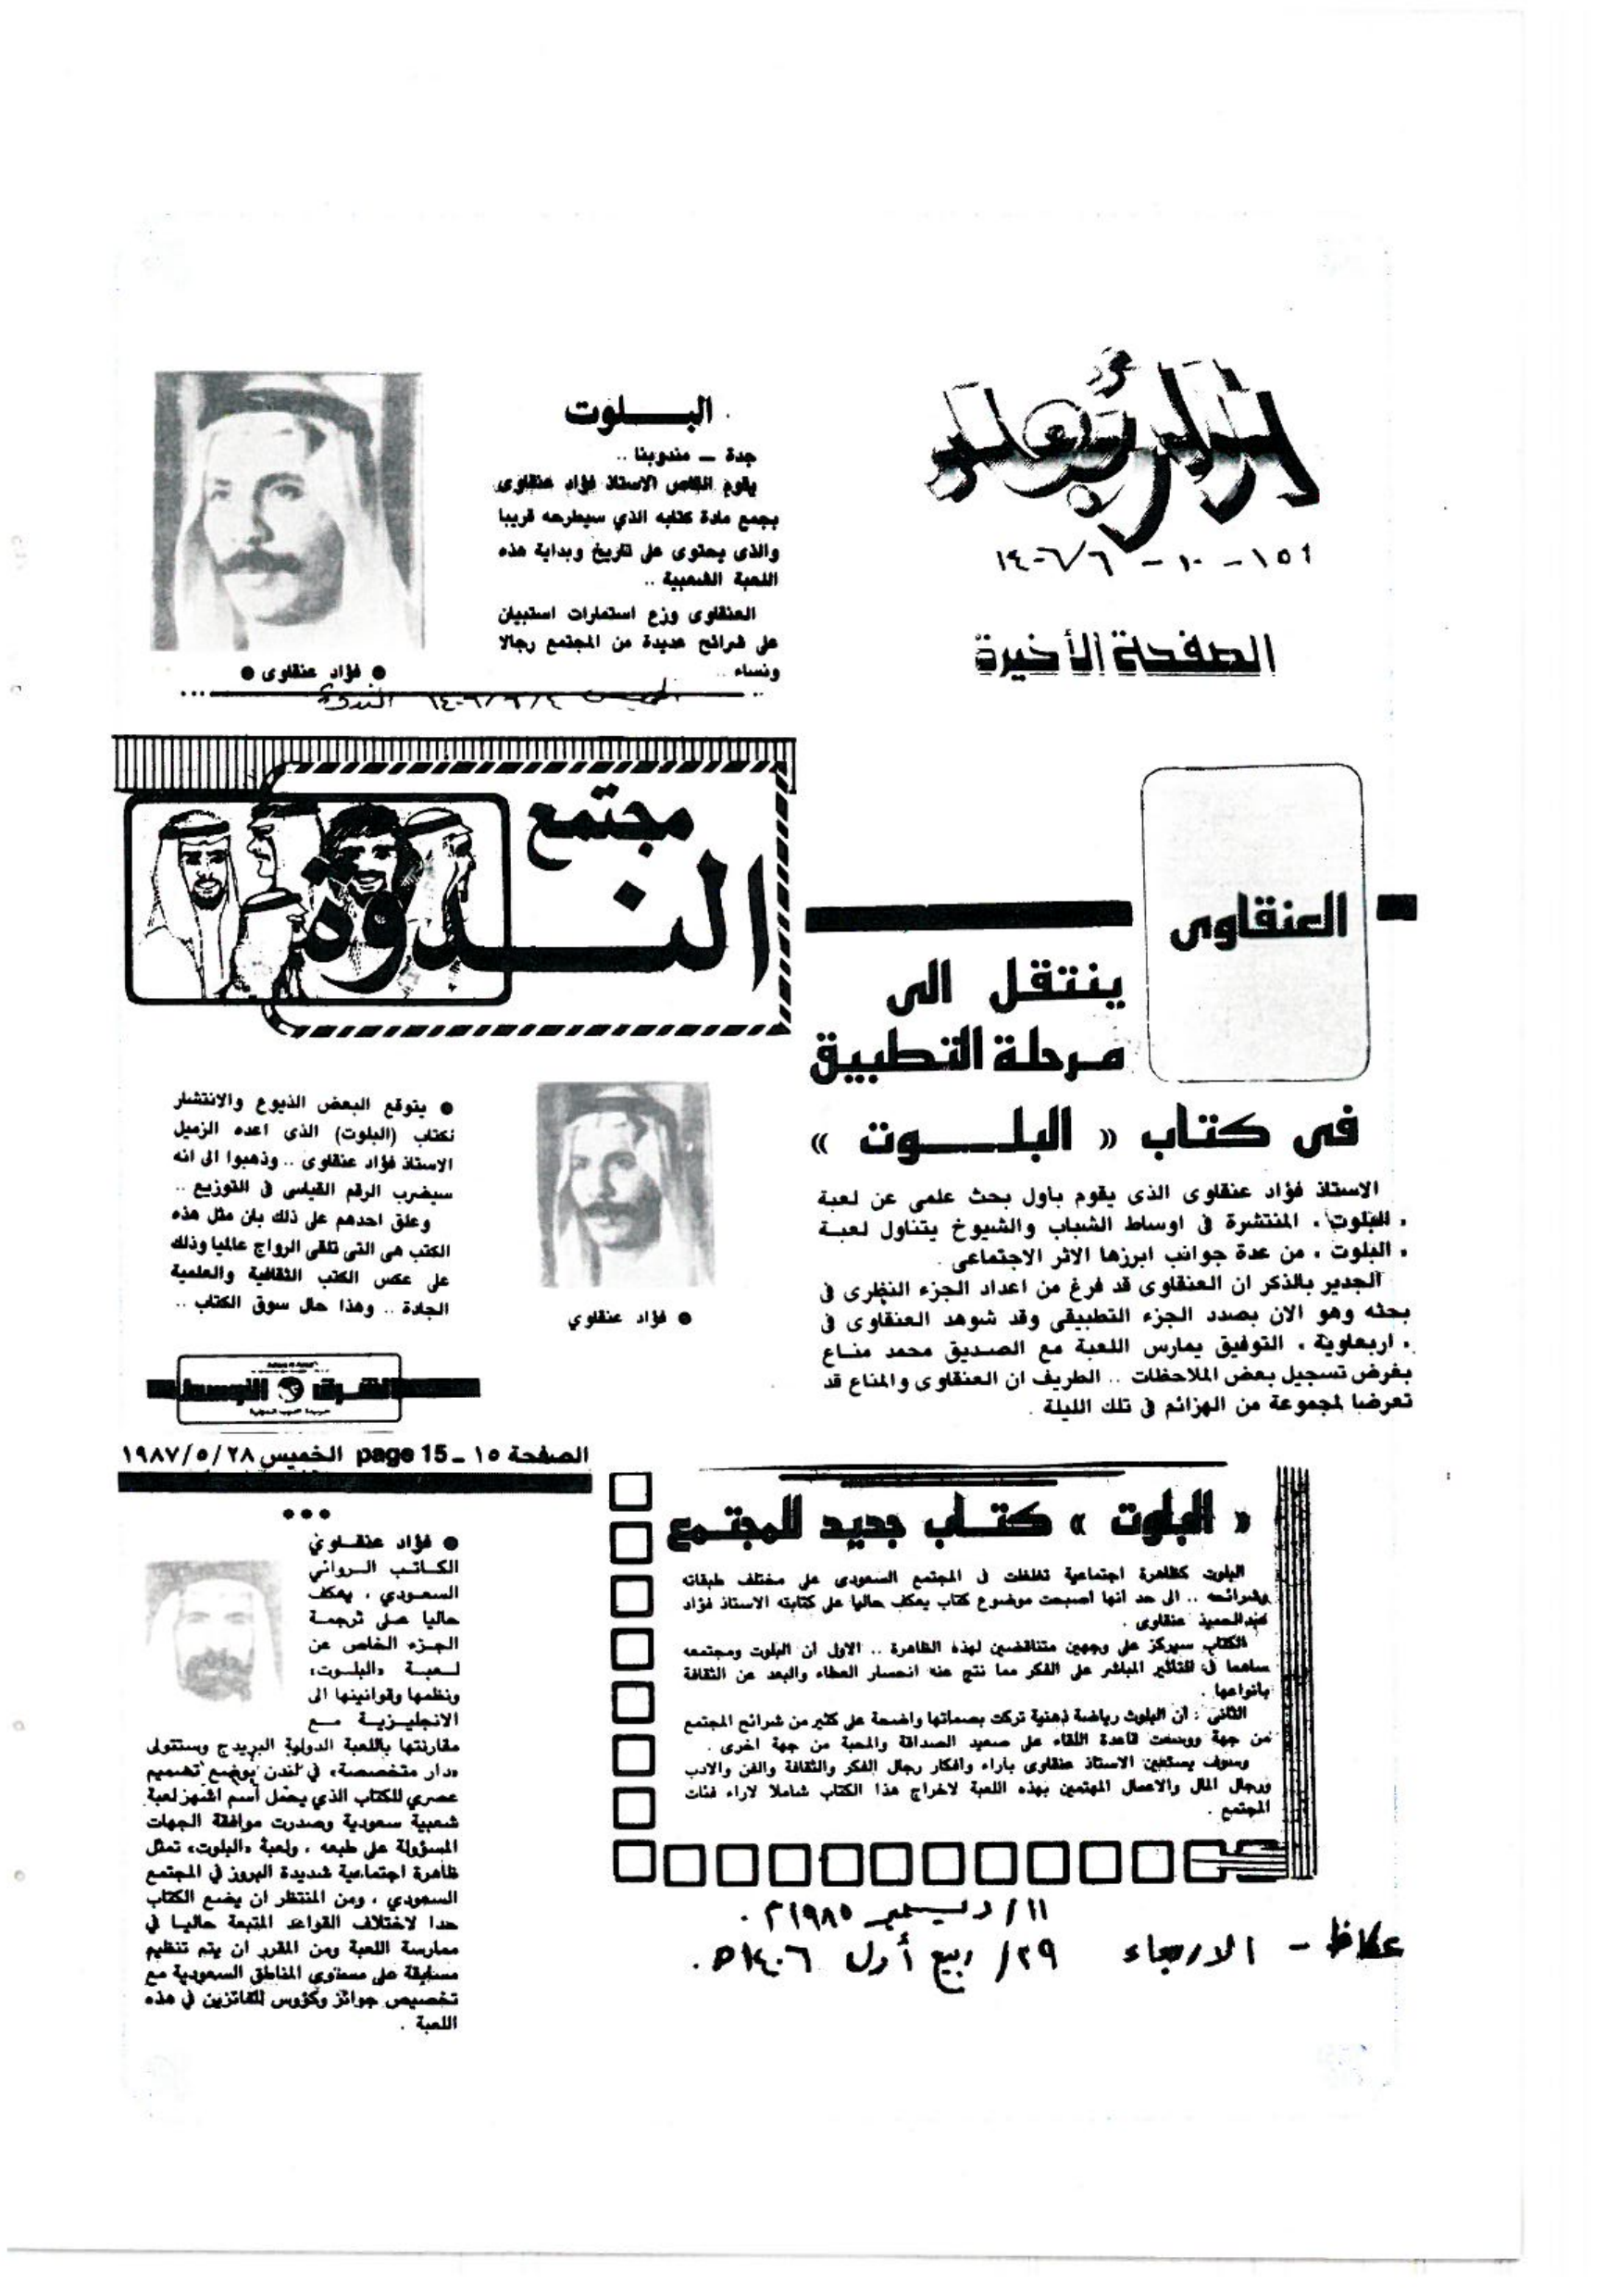 الأربعاء
الصفحة الأخيرة
البـــلوت
جدة ـ مندوبنا ..
يقوم القاص الاستاذ فؤاد عنقاوى
بجمع مادة كتابه الذي سيطرحه قريبا
والذى يحتوى على تاريخ وبداية هذه
اللعبة الشعبية ..
العنقاوى وزع استمارات استبيان
على شرائح عديدة من المجتمع رجالا
ونساء ..
● فؤاد عنقاوى ●
مجتمع
النـــدوة
العنقاوى
ينتقل الى
مرحلة التطبيق
فى كتاب « البلـــوت »
الاستاذ فؤاد عنقاوى الذى يقوم باول بحث علمى عن لعبة
، البلوت ، المنتشرة فى اوساط الشباب والشيوخ يتناول لعبـة
، البلوت ، من عدة جوانب ابرزها الاثر الاجتماعى .
الجدير بالذكر ان العنقاوى قد فرغ من اعداد الجزء النظرى فى
بحثه وهو الان بصدد الجزء التطبيقى وقد شوهد العنقاوى فى
، اربعاوية ، التوفيق يمارس اللعبة مع الصديق محمد مناع
بغرض تسجيل بعض الملاحظات .. الطريف ان العنقاوى والمناع قد
تعرضا لمجموعة من الهزائم فى تلك الليلة .
● يتوقع البعض الذيوع والانتشار
لكتاب (البلوت) الذى اعده الزميل
الاستاذ فؤاد عنقاوى .. وذهبوا الى انه
سيضرب الرقم القياسى فى التوزيع ..
وعلق احدهم على ذلك بان مثل هذه
الكتب هى التى تلقى الرواج عالميا وذلك
على عكس الكتب الثقافية والعلمية
الجادة .. وهذا حال سوق الكتاب ..
● فؤاد عنقاوي
الشرق الاوسط
الصفحة ١٥ ـ page 15 الخميس ١٩٨٧/٥/٢٨
● فؤاد عنقـاوي
الكـاتب الـروائي
السعودي ، يعكف
حاليا على ترجمـة
الجـزء الخاص عن
لـعبـة «البلـوت»
ونظمها وقوانينها الى
الانجليـزيـة مـع
مقارنتها باللعبة الدولية البريدج وستتولى
«دار متخصصة» في لندن بوضع تصميم
عصري للكتاب الذي يحمل اسم اشهر لعبة
شعبية سعودية وصدرت موافقة الجهات
المسؤولة على طبعه ، ولعبة «البلوت» تمثل
ظاهرة اجتماعية شديدة البروز في المجتمع
السعودي ، ومن المنتظر ان يضع الكتاب
حدا لاختلاف القواعد المتبعة حاليـا في
ممارسة اللعبة ومن المقرر ان يتم تنظيم
مسابقة على مستوى المناطق السعودية مع
تخصيص جوائز وكؤوس للفائزين في هذه
اللعبة .
« البلوت » كتـاب جديد للمجتـمع
البلوت كظاهرة اجتماعية تغلغلت فى المجتمع السعودى على مختلف طبقاته
وشرائحه .. الى حد انها اصبحت موضوع كتاب يعكف حاليا على كتابته الاستاذ فؤاد
عبدالحميد عنقاوى .
الكتاب سيركز على وجهين متناقضين لهذه الظاهرة .. الاول ان البلوت ومجتمعه
ساهما فى التأثير المباشر على الفكر مما نتج عنه انحسار العطاء والبعد عن الثقافة
بانواعها .
الثانى : أن البلوت رياضة ذهنية تركت بصماتها واضحة على كثير من شرائح المجتمع
من جهة ووسعت قاعدة اللقاء على صعيد الصداقة والمحبة من جهة اخرى .
وسوف يستعين الاستاذ عنقاوى باراء وافكار رجال الفكر والثقافة والفن والادب
ورجال المال والاعمال المهتمين بهذه اللعبة لاخراج هذا الكتاب شاملا لاراء فئات
المجتمع .
١١/ ديسمبر ١٩٨٥م .
عكاظ - الاربعاء ٢٩/ ربيع أول ١٤٠٦هـ .